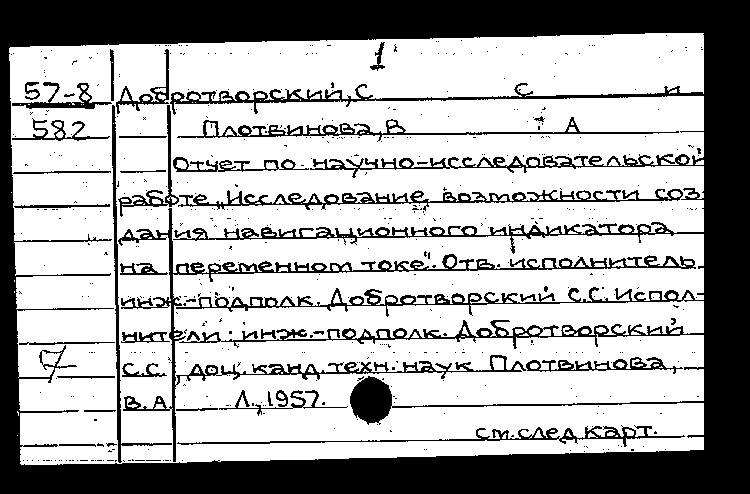 1
57-8 Добротворский, С С и
582 Плотвинова, В А
Отчет по научно-исследовательской
работе „Исследование возможности соз-
дания навигационного индикатора
на переменном токе". Отв. исполнитель
инж.-подполк. Добротворский С.С. Испол-
нители: инж.-подполк. Добротворский
7 С.С., доц. канд. техн. наук Плотвинова,
В.А. Л., 1957.
см. след карт.